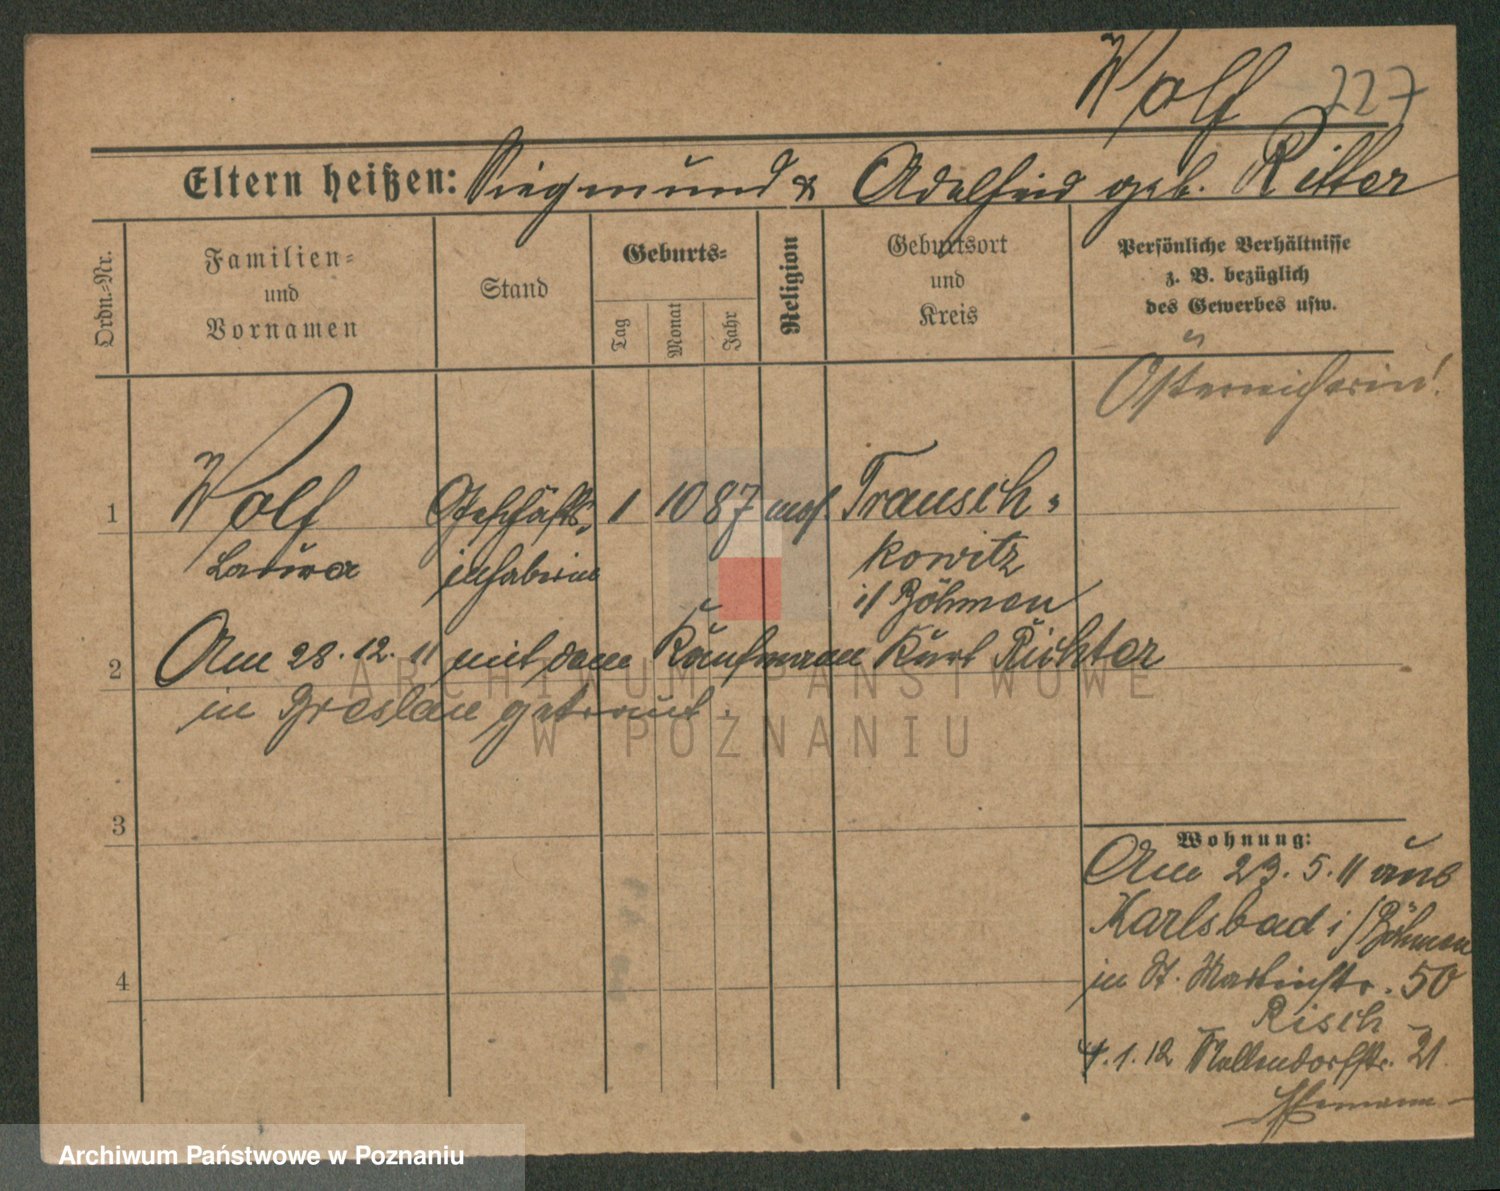 Wolf 227
Eltern heißen: Siegmund & Adelheid geb. Ritter
Ordn.-Nr.
Familien-
und
Vornamen
Stand
Geburts-
Tag
Monat
Jahr
Religion
Geburtsort
und
Kreis
Persönliche Verhältnisse
z. B. bezüglich
des Gewerbes usw.
Österreicherin!
1 Wolf Geschäfts- 1 10 87 mos. Trausch-
Laura inhaberin kowitz
i/ Böhmen
2 Am 28.12.11 mit dem Kaufmann Kurt Richter
in Breslau getraut.
3
4
Wohnung:
Am 23.5.11 aus
Karlsbad i/Böhmen
in St. Martinstr. 50
Risch
4.1.12 Nollendorfstr. 21.
ARCHIWUM PAŃSTWOWE
W POZNANIU
Archiwum Państwowe w Poznaniu